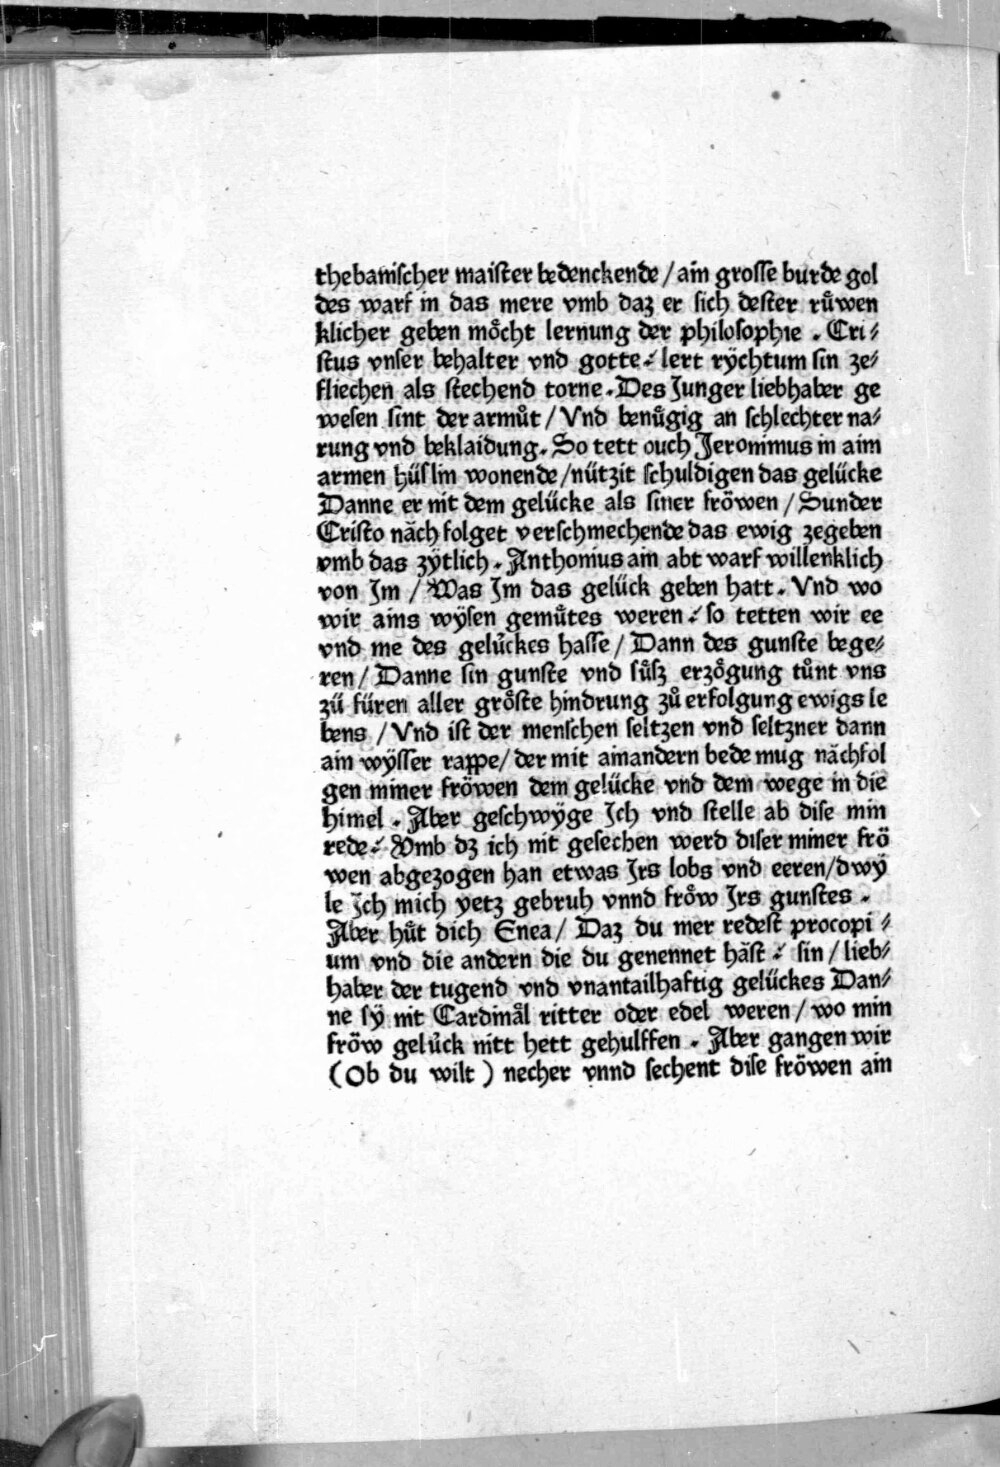 thebanischer maister bedenckende / ain grosse burde gol
des warf in das mere vmb daz er sich dester ruͤwen
klicher geben moͤcht lernung der philosophie . Cri⸗
stus vnser behalter vnd gotte ⸝ lert rÿchtum sin ze⸗
fliechen als stechend torne . Des Junger liebhaber ge
wesen sint der armuͤt / Vnd benuͤgig an schlechter na⸗
rung vnd beklaidung . So tett ouch Jeronimus in aim
armen hüslin wonende / nützit schuldigen das gelücke
Danne er nit dem gelücke als siner fröwen / Sunder
Cristo nächfolget verschmechende das ewig zegeben
vmb das zÿtlich . Anthonius ain abt warf willenklich
von Jm / Was Jm das gelück geben hatt . Vnd wo
wir ains wÿsen gemuͤtes weren ⸝ so tetten wir ee
vnd me des gelückes hasse / Dann des gunste bege⸗
ren / Danne sin gunste vnd suͤsz erzoͤgung tuͤnt vns
zü füren aller groͤste hindrung zuͤ erfolgung ewigs le
bens / Vnd ist der menschen seltzen vnd seltzner dann
ain wÿsser rappe / der mit ainandern bede mug nächfol
gen miner fröwen dem gelücke vnd dem wege in die
himel . Aber geschwÿge Jch vnd stelle ab dise min
rede ⸝ Vmb dz ich nit gesechen werd diser miner frö
wen abgezogen han etwas Jrs lobs vnd eeren / dwÿ
le Jch mich yetz gebruh vnnd froͤw Jrs gunstes .
Aber huͤt dich Enea / Daz du mer redest procopi ⸗
um vnd die andern die du genennet häst ⸝ sin / lieb⸗
haber der tugend vnd vnantailhaftig gelückes Dan⸗
ne sÿ nit Cardinäl ritter oder edel weren / wo min
fröw gelück nitt hett gehulffen . Aber gangen wir
( Ob du wilt ) necher vnnd sechent dise fröwen ain